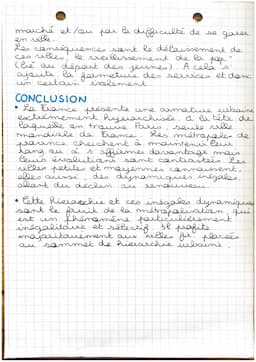 marché et/ou par la difficulté de se garer
en ville.
Les conséquences sont le délaissement de
ces villes, le vieillissement de la pop°
(lié au départ des jeunes). A cela s'
ajoute la fermeture des services et donc
un certain isolement.
CONCLUSION
• La France présente une armature urbaine
extrêmement hiérarchisée, à la tête de
laquelle on trouve Paris, seule ville
mondiale de France. Les métropoles de
province cherchent à maintenir leur
rang ou à s'affirmer davantage mais
leurs évolutions sont contrastées. Les
villes petites et moyennes connaissent,
elles aussi, des dynamiques inégales,
allant du déclin au renouveau.
• Cette hiérarchie et ces inégales dynamiques
sont le fruit de la métropolisation, qui
est un phénomène particulièrement
inégalitaire et sélectif. Il profite
majoritairement aux villes placées
au sommet de hiérarchie urbaine.